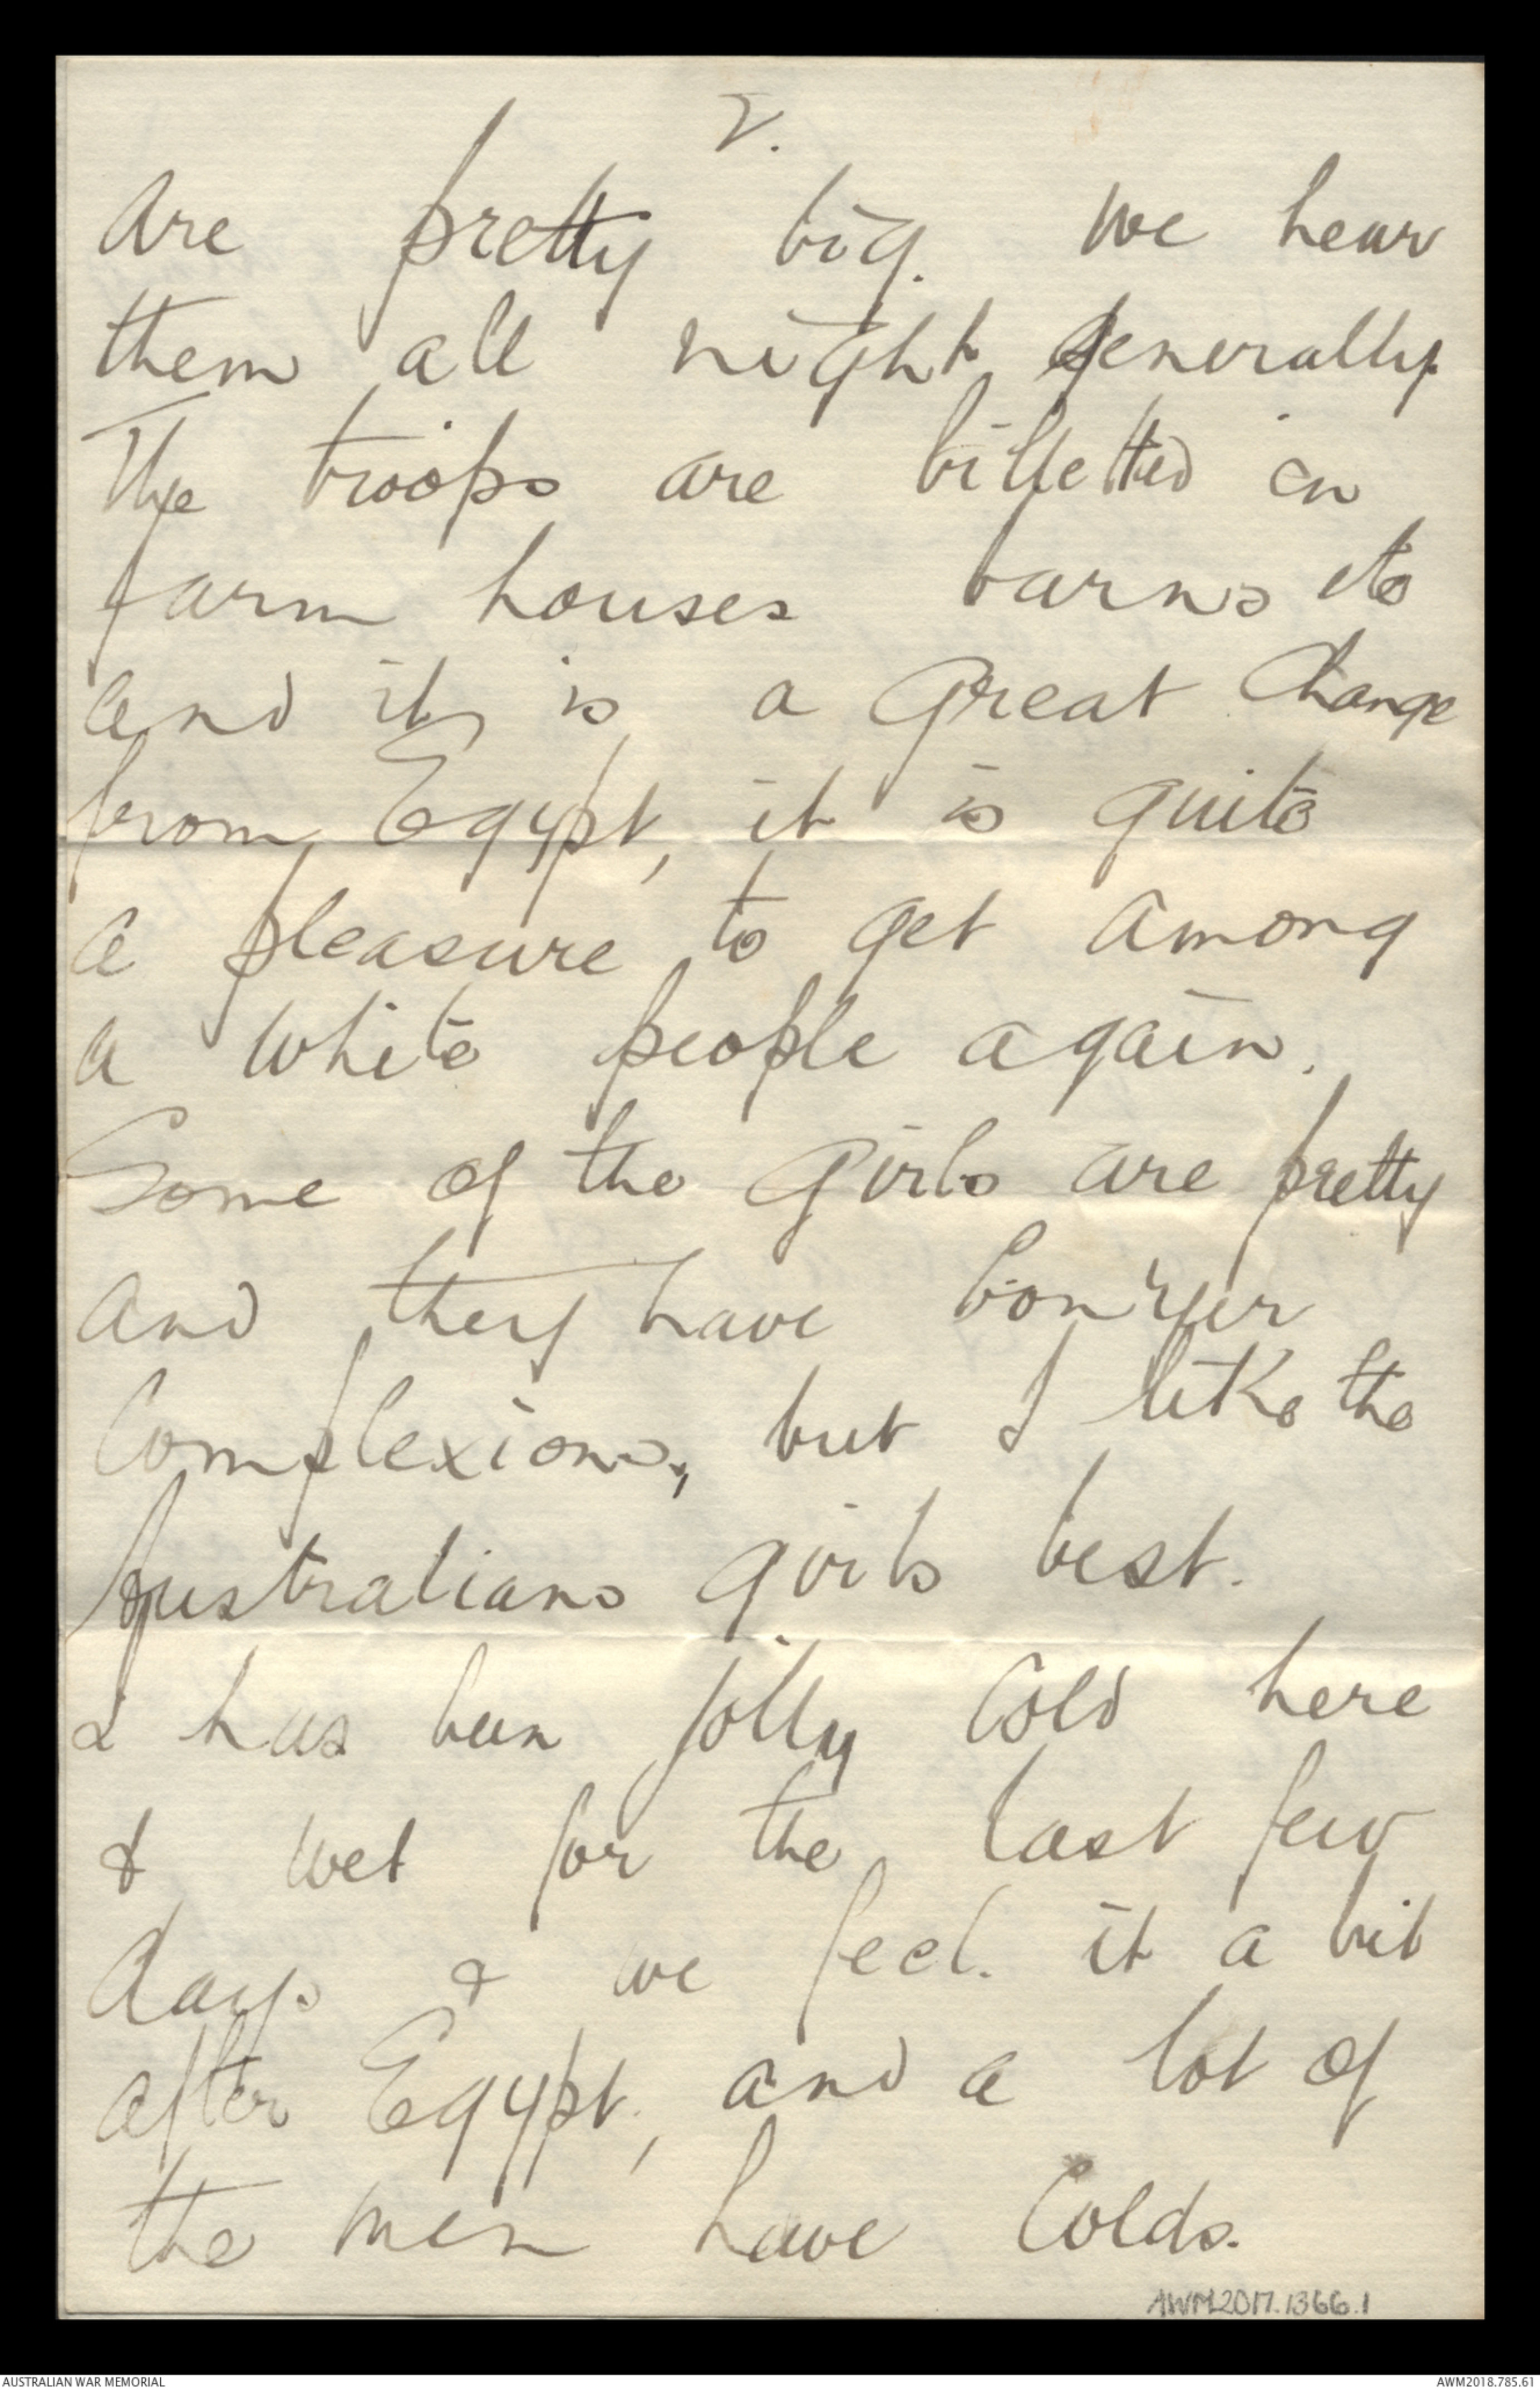 2.
are pretty big. We hear
them all night generally.
The troops are billetted in
farm houses barns etc
and it is a great change
from Egypt, it is quite
a pleasure to get among
a white people again.
Some of the girls are pretty
and they have bonzer
complexions, but I like the
Australians girls best.
I has been jolly cold here
& wet for the last few
days & we feel it a bit
after Egypt, and a lot of
the men have colds.
AWM2017.1366.1
AUSTRALIAN WAR MEMORIAL
AWM2018.785.61